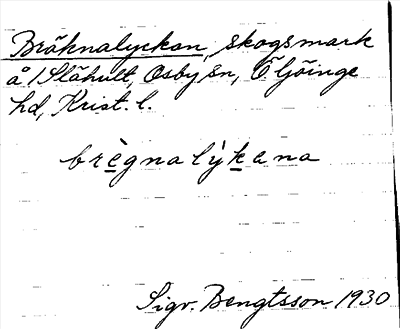 Bräknalyckan, skogsmark
å 1 Slähult, Osby sn, Ö Göinge
hd, Krist. l.
brègnalýkana
Sigv. Bengtsson 1930